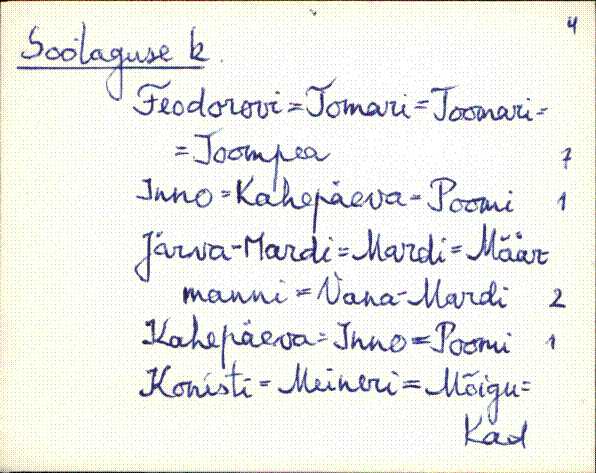 4
Soolaguse k.
Feodorovi = Tomari = Toomari =
= Toompea 7
Inno = Kahepäeva = Poomi 1
Järva-Mardi = Mardi = Määr
manni = Vana-Mardi 2
Kahepäeva = Inno = Poomi 1
Konisti = Meineri = Mõigu =
Kad